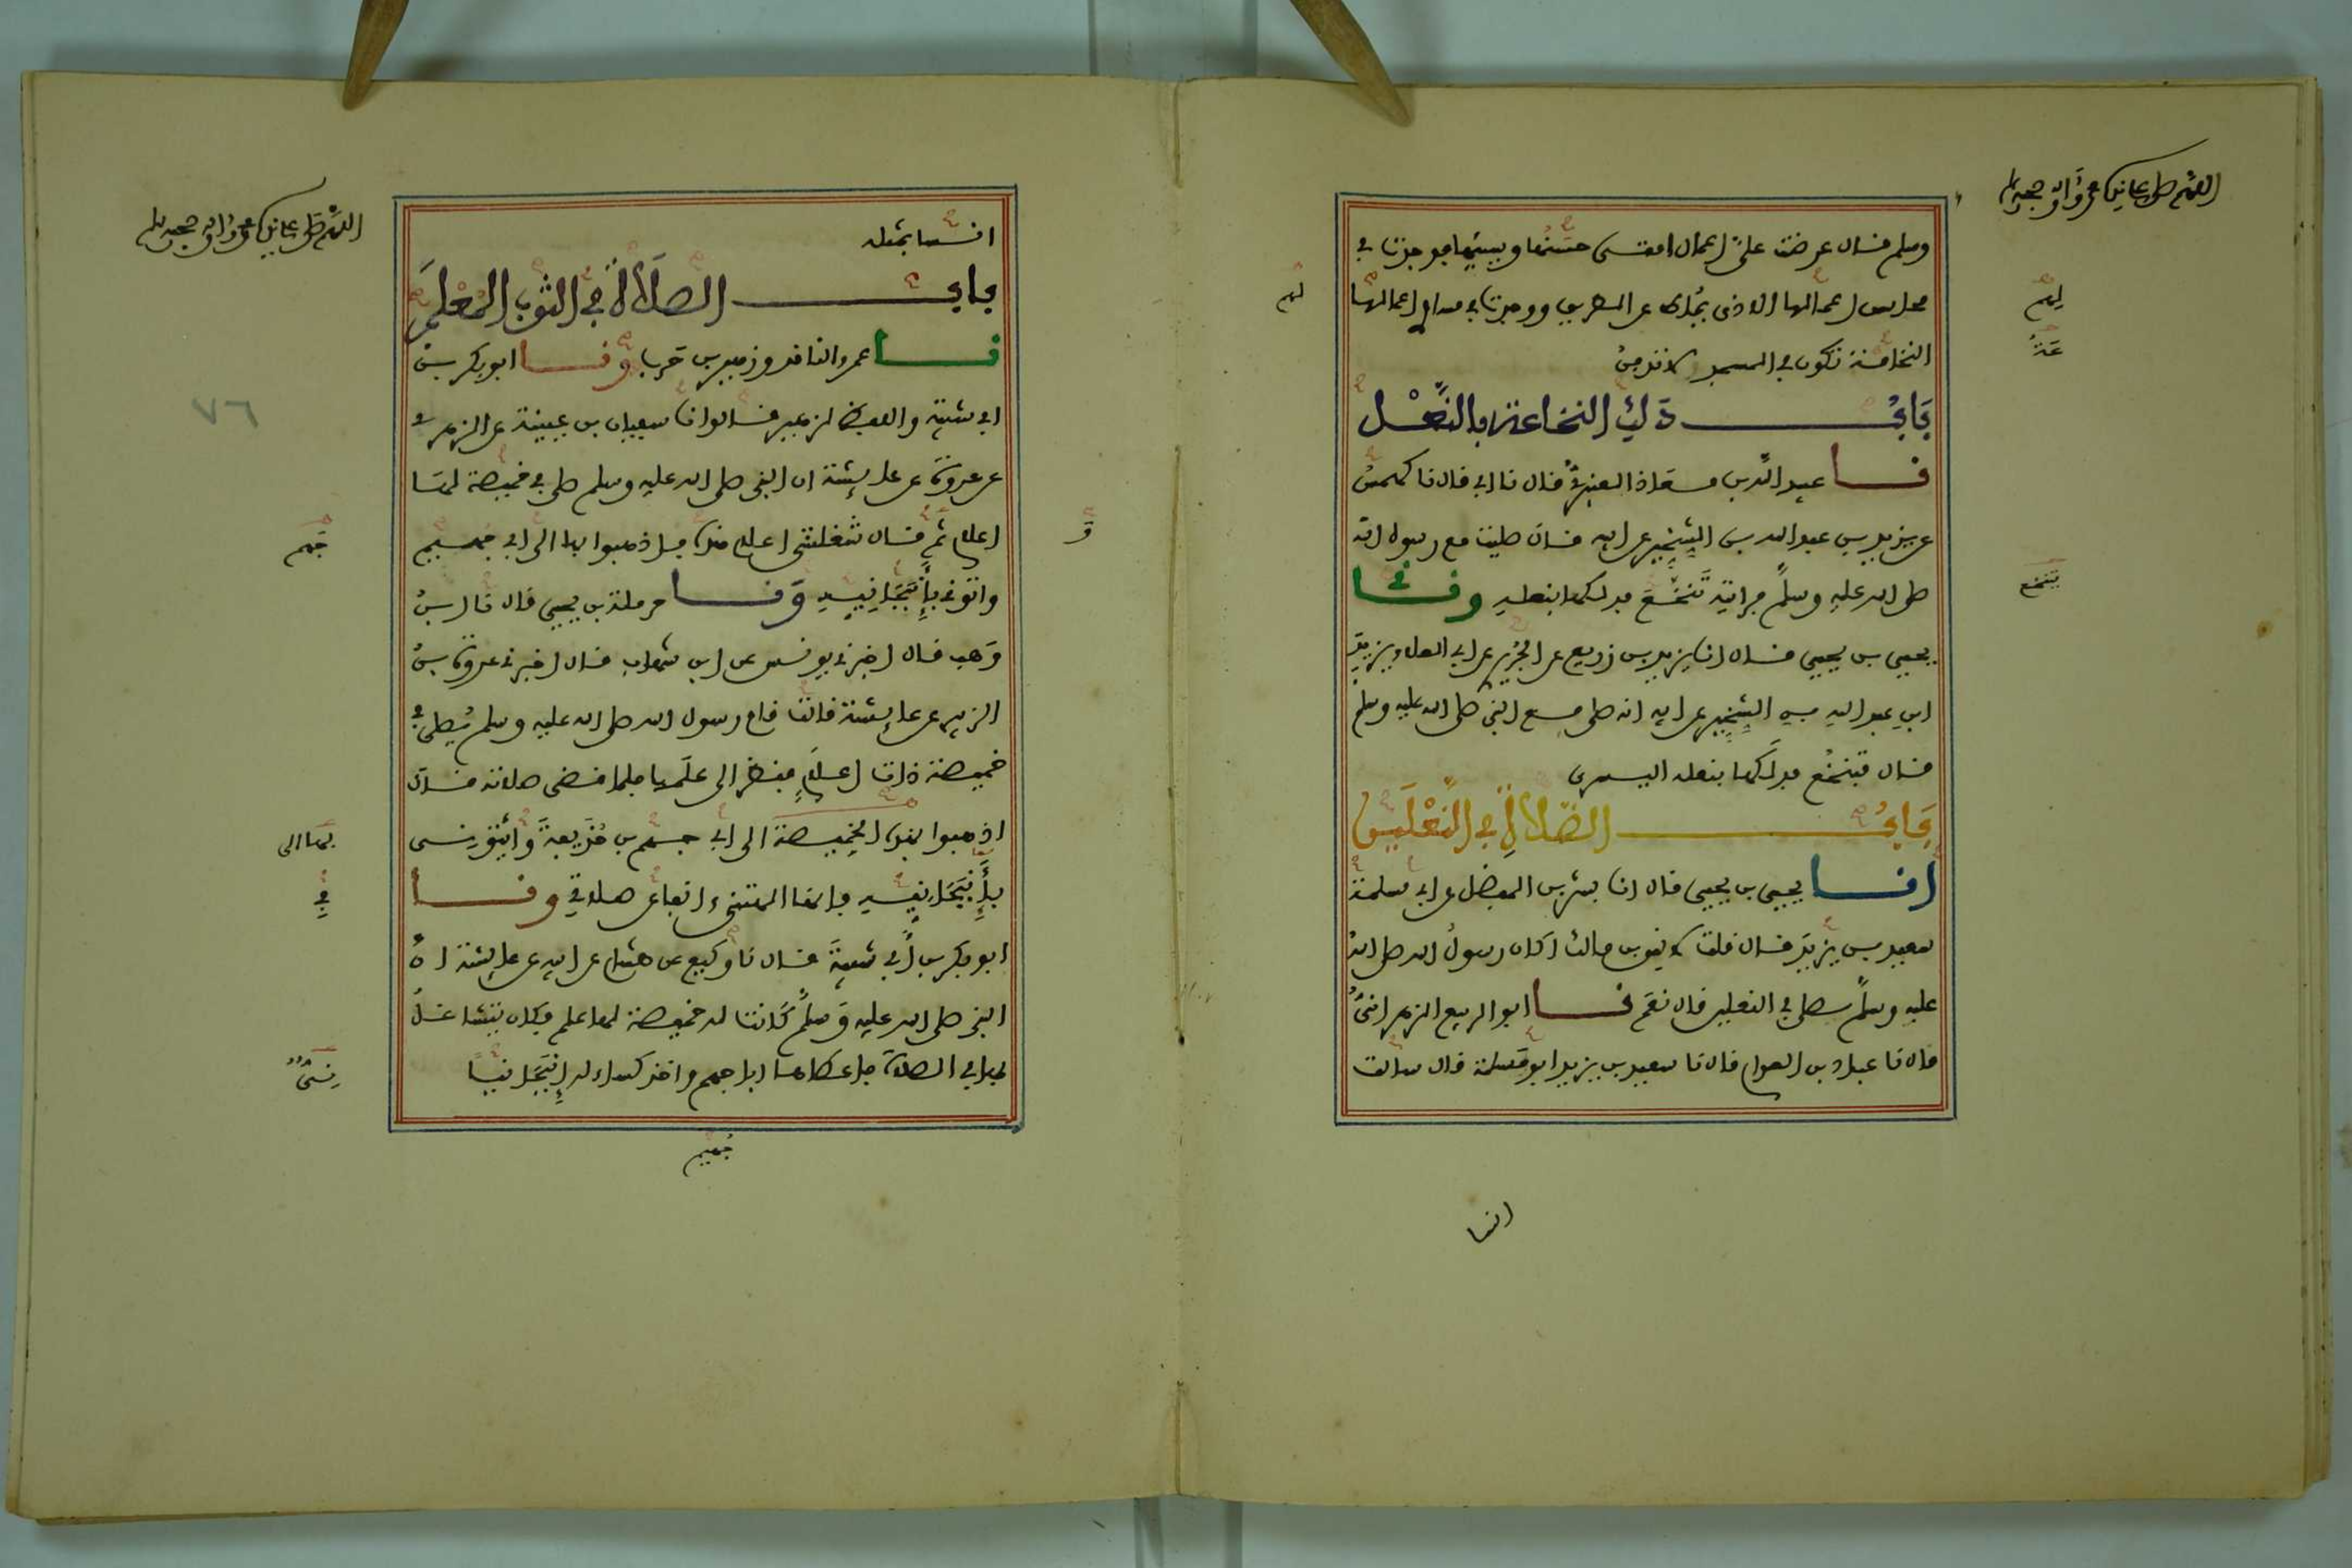 اللهم صل على نبينا محمد وآله وصحبه وسلم
وسلم قال عرضت علي أعمال امتي حسنها وسيئها فوجدت في
محاسن اعمالها الاذى يماط عن الطريق ووجدت في مساوي اعمالها
النخامة تكون في المسجد لا تدفن
باب دلك النخاعة بالنعل
نا عبيد الله بن معاذ العنبري قال نا ابي قال نا كهمس
عن يزيد بن عبد الله بن الشخير عن ابيه قال صليت مع رسول الله
صلى الله عليه وسلم فرأيته تنخع فدلكها بنعله وثني
يحيى بن يحيى قال انا يزيد بن زريع عن الجريري عن ابي العلاء يزيد
ابن عبد الله بن الشخير عن ابيه انه صلى مع النبي صلى الله عليه وسلم
قال فتنخع فدلكها بنعله اليسرى
باب الصلاة في النعلين
انا يحيى بن يحيى قال انا بشر بن المفضل عن ابي سلمة
سعيد بن يزيد قال قلت لانس بن مالك اكان رسول الله صلى الله
عليه وسلم يصلي في النعلين قال نعم نا ابو الربيع الزهراني
قال نا عباد بن العوام قال نا سعيد بن يزيد ابو مسلمة قال سألت
انسا
لهم
يتنخع
اللهم صل على نبينا محمد وآله وصحبه وسلم
انسا بمثله
باب الصلاة في الثوب المعلم
نا عمرو الناقد وزهير بن حرب ونا ابو بكر بن
ابي شيبة واللفظ لزهير قالوا نا سفيان بن عيينة عن الزهري
عن عروة عن عايشة ان النبي صلى الله عليه وسلم صلى في خميصة لها
اعلام ثم قال شغلتني اعلام هذه فاذهبوا بها الى ابي جهم
واتوني بأنبجانيه ونا حرملة بن يحيى قال نا ابن
وهب قال اخبرني يونس عن ابن شهاب قال اخبرني عروة بن
الزبير عن عايشة قالت قام رسول الله صلى الله عليه وسلم يصلي في
خميصة ذات اعلام فنظر الى علمها فلما قضى صلاته قال
اذهبوا بهذه الخميصة الى ابي جهم بن حذيفة وائتوني
بأنبجانيه فانها الهتني ءانفا عن صلاتي ونا
ابو بكر بن أبي شيبة قال نا وكيع عن هشام عن ابيه عن عايشة ان
النبي صلى الله عليه وسلم كانت له خميصة لها علم فكان يتشاغل
بها في الصلاة فاعطاها ابا جهم واخذ كساء له انبجانيا
جهم
بها الى
في
٧٦